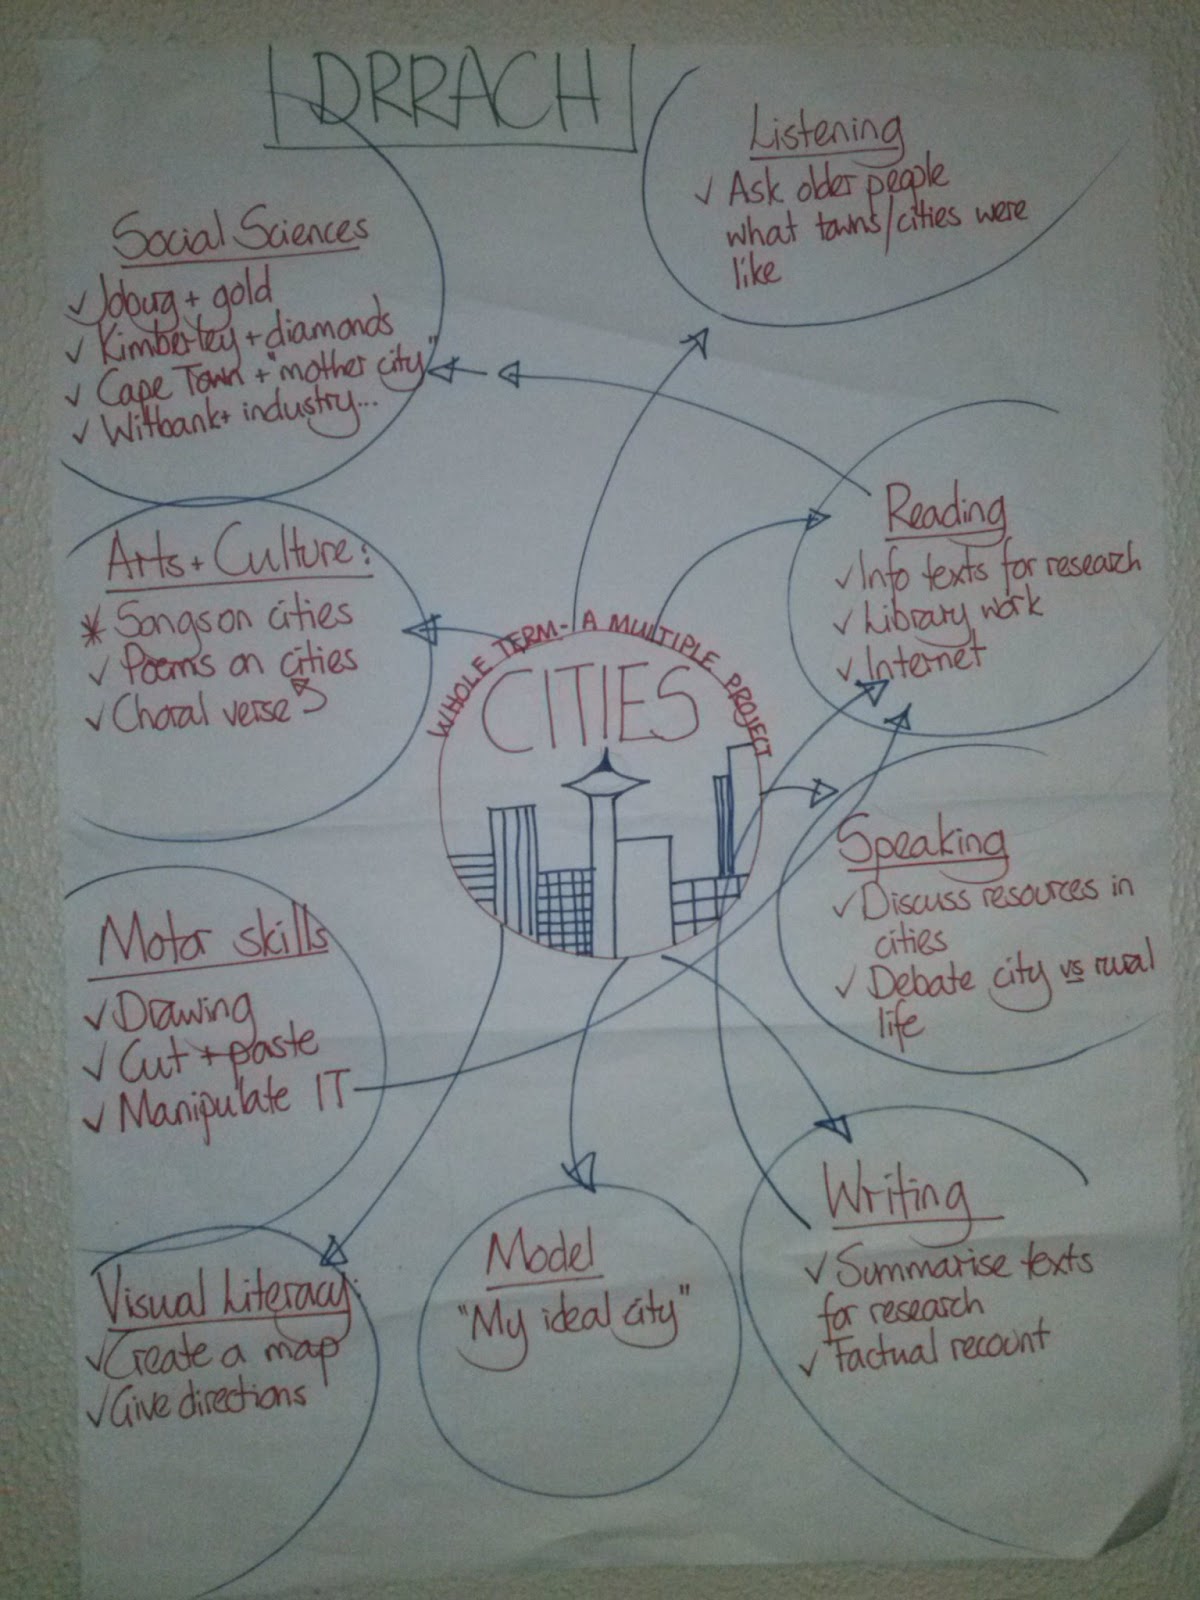 DRRACH
Listening
✓ Ask older people
what towns/cities were
like
Social Sciences
✓ Joburg + gold
✓ Kimberley + diamonds
✓ Cape Town + "mother city"
✓ Witbank + industry...
Reading
✓ Info texts for research
✓ Library work
✓ Internet
Arts + Culture:
* Songs on cities
✓ Poems on cities
✓ Choral verse
WHOLE TERM - A MULTIPLE PROJECT
CITIES
Speaking
✓ Discuss resources in
cities
✓ Debate city vs rural
life
Motor skills
✓ Drawing
✓ Cut + paste
✓ Manipulate IT
Writing
✓ Summarise texts
for research
✓ Factual recount
Model
"My ideal city"
Visual Literacy:
✓ Create a map
✓ Give directions